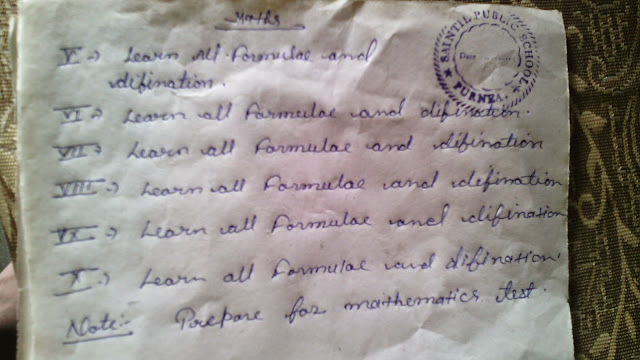 Maths
V → Learn all formulae and
difination.
VI → Learn all formulae and difination.
VII → Learn all formulae and difination
VIII → Learn all formulae and difination
IX → Learn all formulae and difination
X → Learn all formulae and difination.
Note:- Prepare for mathematics test.
SAINTIL PUBLIC SCHOOL
Date
PURNEA